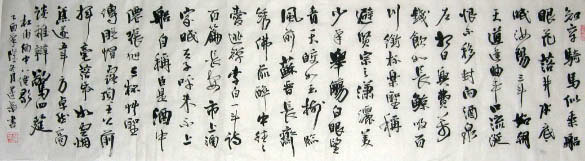 知章騎馬似乘船
眼花落井水底
眠汝陽三斗始朝
天道逢曲車口流涎
恨不移封向酒泉
左相日興費萬
錢飲如長鯨吸百
川銜杯樂聖稱
避賢宗之瀟灑美
少年舉觴白眼望
青天皎如玉樹臨
風前蘇晉長齋
繡佛前醉中往往
愛逃禪李白一斗詩
百篇長安市上酒
家眠天子呼來不上
船自稱臣是酒中
仙張旭三杯草聖
傳脫帽露頂王公前
揮毫落紙如雲煙
焦遂五斗方卓然高
談雄辯驚四筵